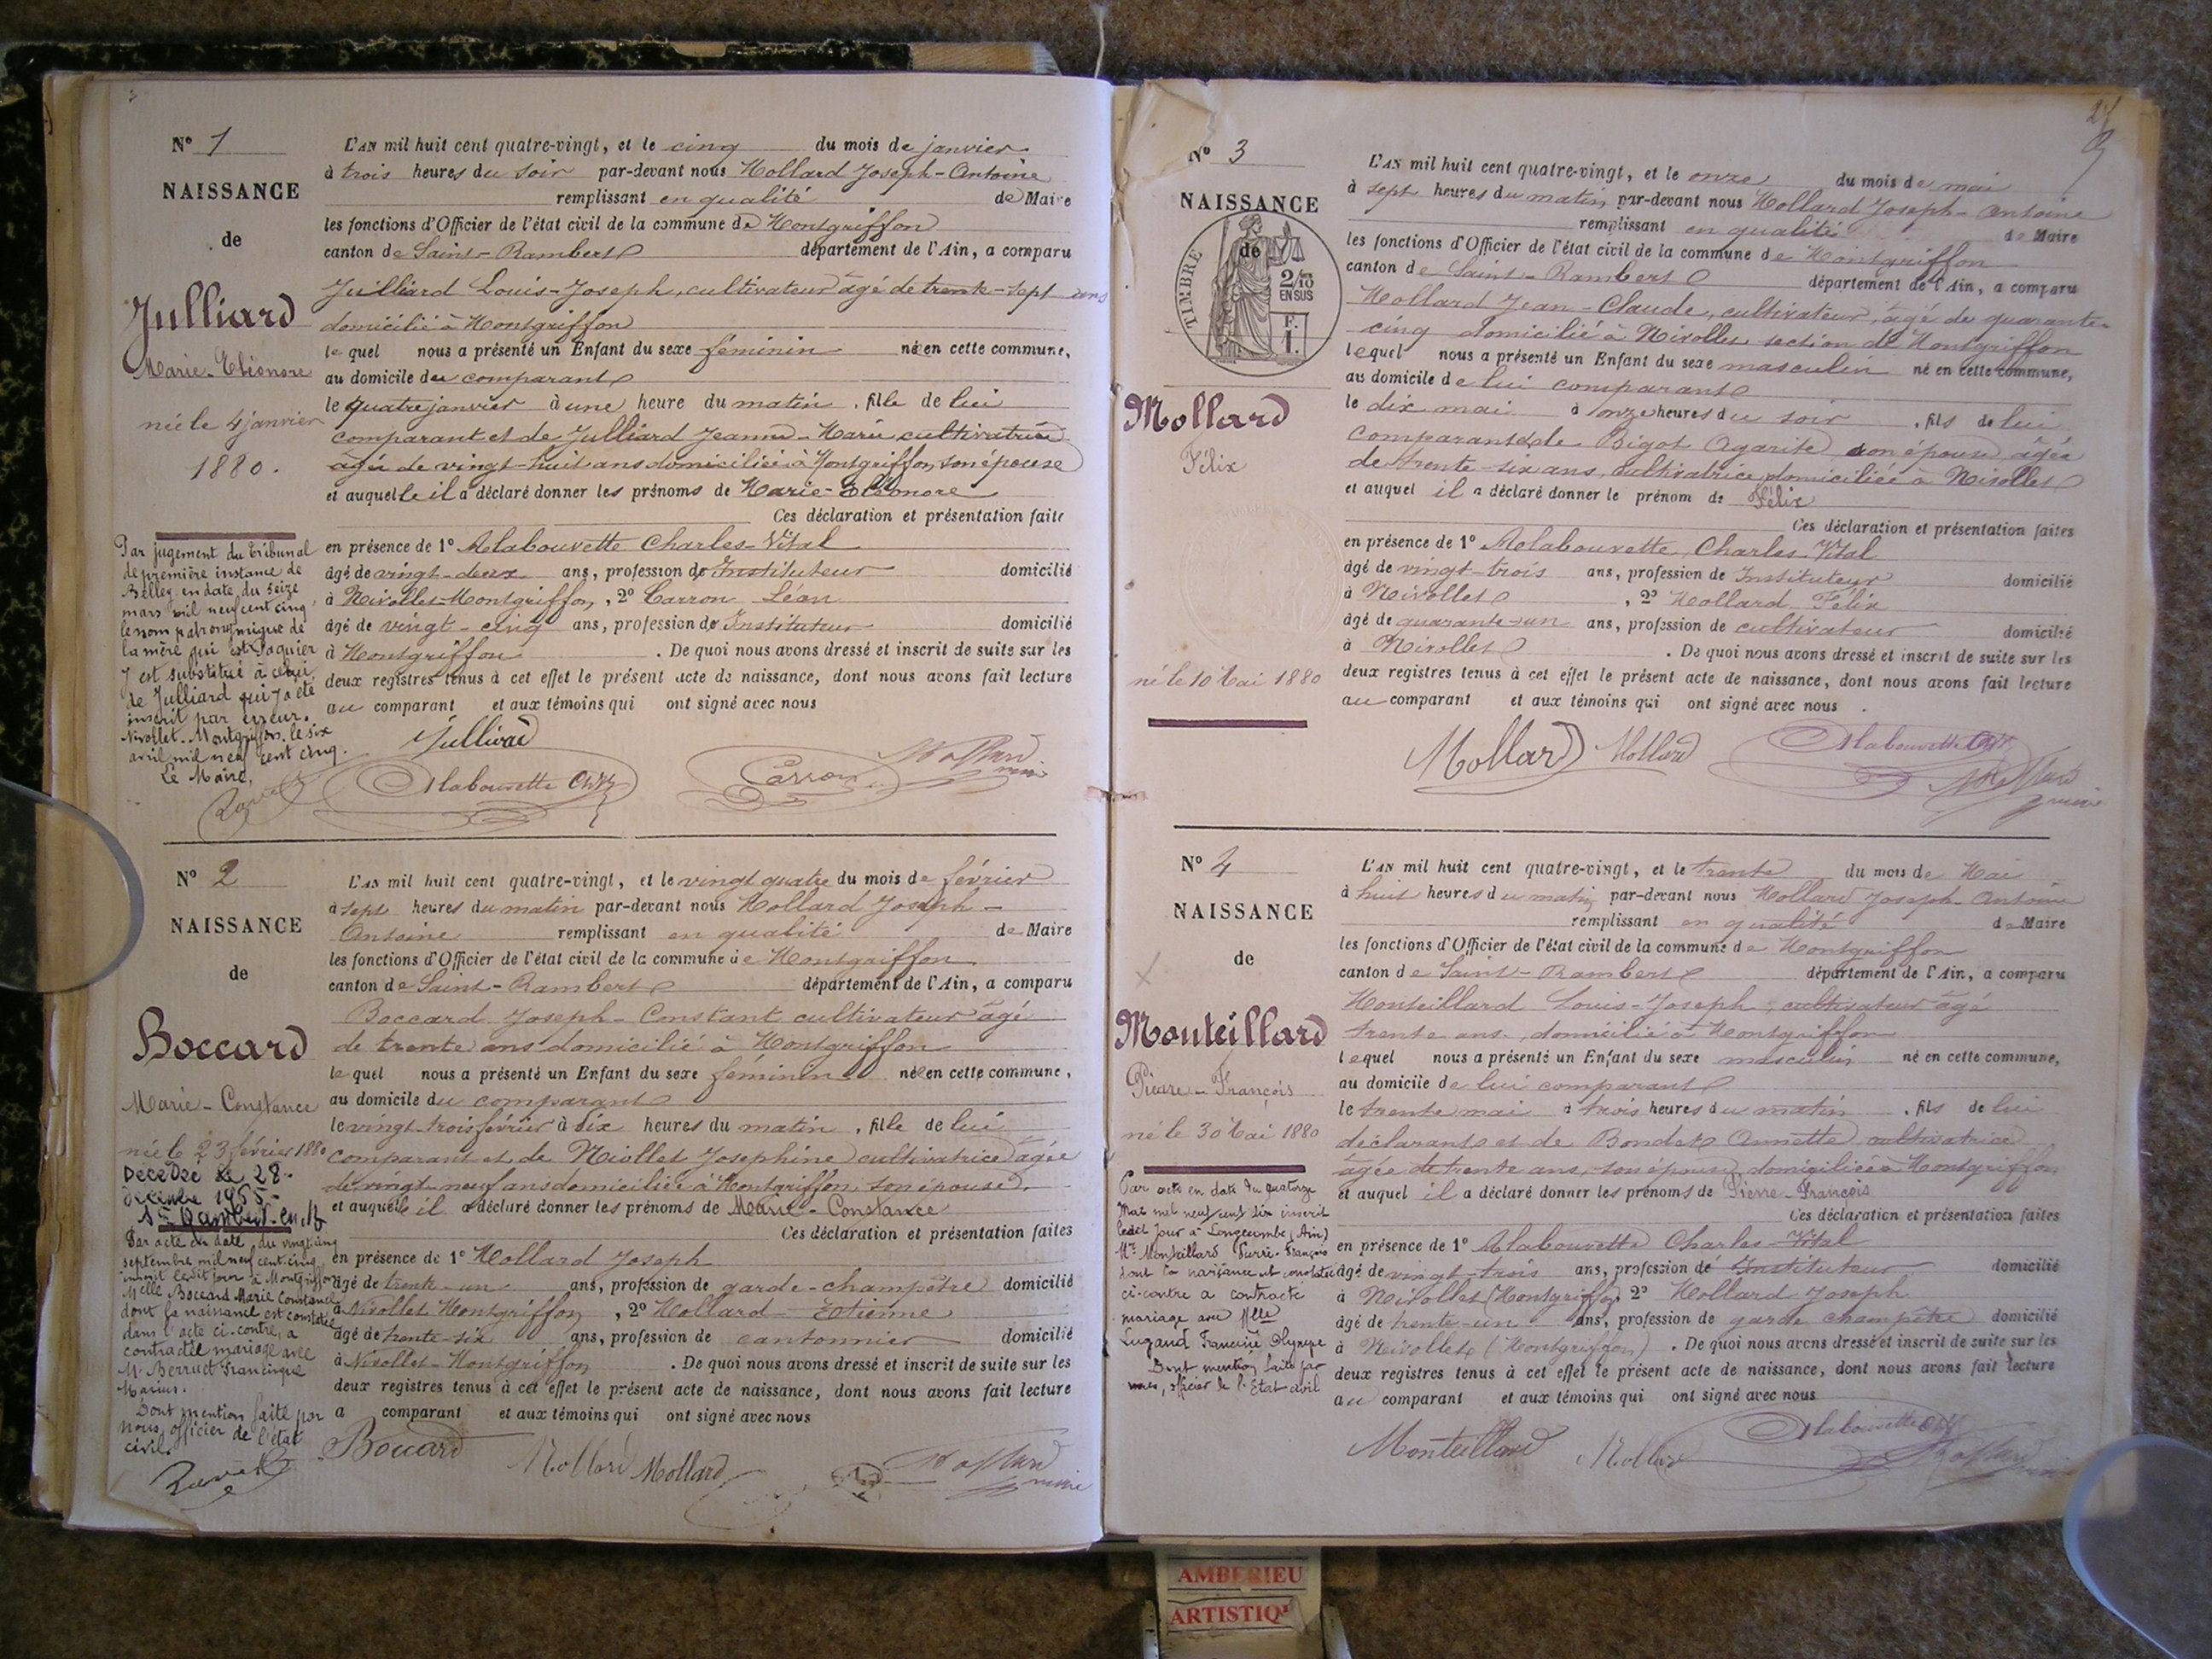 N° 1
NAISSANCE
de
Julliard
Marie-Eléonore
née le 4 janvier
1880.
Par jugement du tribunal
de première instance de
Belley en date du seize
mars mil neuf cent cinq,
le nom patronymique de
la mère qui est Paquier
y est substitué à celui
de Julliard qui y a été
inscrit par erreur.
Nivollet-Montgriffon, le six
avril mil neuf cent cinq.
Le Maire,
L'AN mil huit cent quatre-vingt, et le cinq du mois de janvier
à trois heures du soir par-devant nous Mollard Joseph-Antoine
remplissant en qualité de Maire
les fonctions d'Officier de l'état civil de la commune de Montgriffon
canton de Saint-Rambert département de l'Ain, a comparu
Juilliard Louis-Joseph, cultivateur âgé de trente-sept ans
domicilié à Montgriffon
lequel nous a présenté un Enfant du sexe féminin née en cette commune,
au domicile du comparant
le quatre janvier à une heure du matin, fille de lui
comparant et de Julliard Jeanne-Marie cultivatrice
âgée de vingt-huit ans domiciliée à Montgriffon, son épouse
et auquelle il a déclaré donner les prénoms de Marie-Eléonore
Ces déclaration et présentation faite
en présence de 1° Alabouvette Charles-Vital
âgé de vingt-deux ans, profession de Instituteur domicilié
à Nivollet-Montgriffon, 2° Carron Léon
âgé de vingt-cinq ans, profession de Instituteur domicilié
à Montgriffon. De quoi nous avons dressé et inscrit de suite sur les
deux registres tenus à cet effet le présent acte de naissance, dont nous avons fait lecture
au comparant et aux témoins qui ont signé avec nous
Julliard
Alabouvette Ch.
Carron
Mollard maire
N° 2
NAISSANCE
de
Boccard
Marie-Constance
née le 23 février 1880
Décédée le 28
décembre 1955
St Rambert-en-B
Par acte en date du vingt-cinq
septembre mil neuf cent cinq
inscrit ledit jour à Montgriffon
Melle Boccard Marie Constance
dont la naissance est constatée
dans l'acte ci-contre, a
contracté mariage avec
M. Berruet Francisque
Marius.
Dont mention faite par
nous, officier de l'état
civil.
L'AN mil huit cent quatre-vingt, et le vingt quatre du mois de février
à sept heures du matin par-devant nous Mollard Joseph-
Antoine remplissant en qualité de Maire
les fonctions d'Officier de l'état civil de la commune de Montgriffon
canton de Saint-Rambert département de l'Ain, a comparu
Boccard Joseph-Constant cultivateur âgé
de trente ans domicilié à Montgriffon
lequel nous a présenté un Enfant du sexe féminin née en cette commune,
au domicile du comparant
le vingt-trois février à dix heures du matin, fille de lui
comparant et de Niollet Josephine cultivatrice âgée
de vingt-neuf ans domiciliée à Montgriffon, son épouse.
et auquelle il a déclaré donner les prénoms de Marie-Constance
Ces déclaration et présentation faites
en présence de 1° Mollard Joseph
âgé de trente-un ans, profession de garde-champêtre domicilié
à Nivollet Montgriffon, 2° Mollard Etienne
âgé de trente-six ans, profession de cantonnier domicilié
à Nivollet-Montgriffon. De quoi nous avons dressé et inscrit de suite sur les
deux registres tenus à cet effet le présent acte de naissance, dont nous avons fait lecture
a comparant et aux témoins qui ont signé avec nous
Boccard
Mollard Mollard
Mollard maire
N° 3
NAISSANCE
de
TIMBRE
2/10
EN SUS
F.
1.
Mollard
Félix
né le 10 Mai 1880
L'AN mil huit cent quatre-vingt, et le onze du mois de mai
à sept heures du matin par-devant nous Mollard Joseph-Antoine
remplissant en qualité de Maire
les fonctions d'Officier de l'état civil de la commune de Montgriffon
canton de Saint-Rambert département de l'Ain, a comparu
Mollard Jean-Claude, cultivateur, âgé de quarante-
cinq domicilié à Nivollet section de Montgriffon
lequel nous a présenté un Enfant du sexe masculin né en cette commune,
au domicile de lui comparant
le dix mai à onze heures du soir, fils de lui
comparant et de Bigot Agarite son épouse, âgée
de trente-six ans, cultivatrice domiciliée à Nivollet
et auquel il a déclaré donner le prénom de Félix
Ces déclaration et présentation faites
en présence de 1° Alabouvette Charles Vital
âgé de vingt-trois ans, profession de Instituteur domicilié
à Nivollet, 2° Mollard Félix
âgé de quarante-un ans, profession de cultivateur domicilié
à Nivollet. De quoi nous avons dressé et inscrit de suite sur les
deux registres tenus à cet effet le présent acte de naissance, dont nous avons fait lecture
au comparant et aux témoins qui ont signé avec nous.
Mollard Mollard
Alabouvette Ch.
Mollard maire
N° 4
NAISSANCE
de
Monteillard
Pierre-François
né le 30 Mai 1880
Par acte en date du quatorze
Mai mil neuf cent dix inscrit
ledit jour à Longecombe (Ain)
Mr Monteillard Pierre-François
dont la naissance est constatée
ci-contre a contracté
mariage avec Melle
Lugand Francine Olympe
Dont mention faite par
nous, officier de l'Etat civil
L'AN mil huit cent quatre-vingt, et le trente du mois de Mai
à huit heures du matin par-devant nous Mollard Joseph-Antoine
remplissant en qualité de Maire
les fonctions d'Officier de l'état civil de la commune de Montgriffon
canton de Saint-Rambert département de l'Ain, a comparu
Monteillard Louis-Joseph, cultivateur âgé
trente ans, domicilié à Montgriffon
lequel nous a présenté un Enfant du sexe masculin né en cette commune,
au domicile de lui comparant
le trente mai à trois heures du matin, fils de lui
déclarant et de Bondet Annette cultivatrice
âgée de trente ans, son épouse, domiciliée à Montgriffon
et auquel il a déclaré donner les prénoms de Pierre-François
Ces déclaration et présentation faites
en présence de 1° Alabouvette Charles-Vital
âgé de vingt-trois ans, profession de Instituteur domicilié
à Nivollet (Montgriffon) 2° Mollard Joseph
âgé de trente-un ans, profession de garde champêtre domicilié
à Nivollet (Montgriffon). De quoi nous avons dressé et inscrit de suite sur les
deux registres tenus à cet effet le présent acte de naissance, dont nous avons fait lecture
au comparant et aux témoins qui ont signé avec nous
Monteillard
Mollard
Alabouvette Ch.
Mollard maire
AMBERIEU
ARTISTIQ